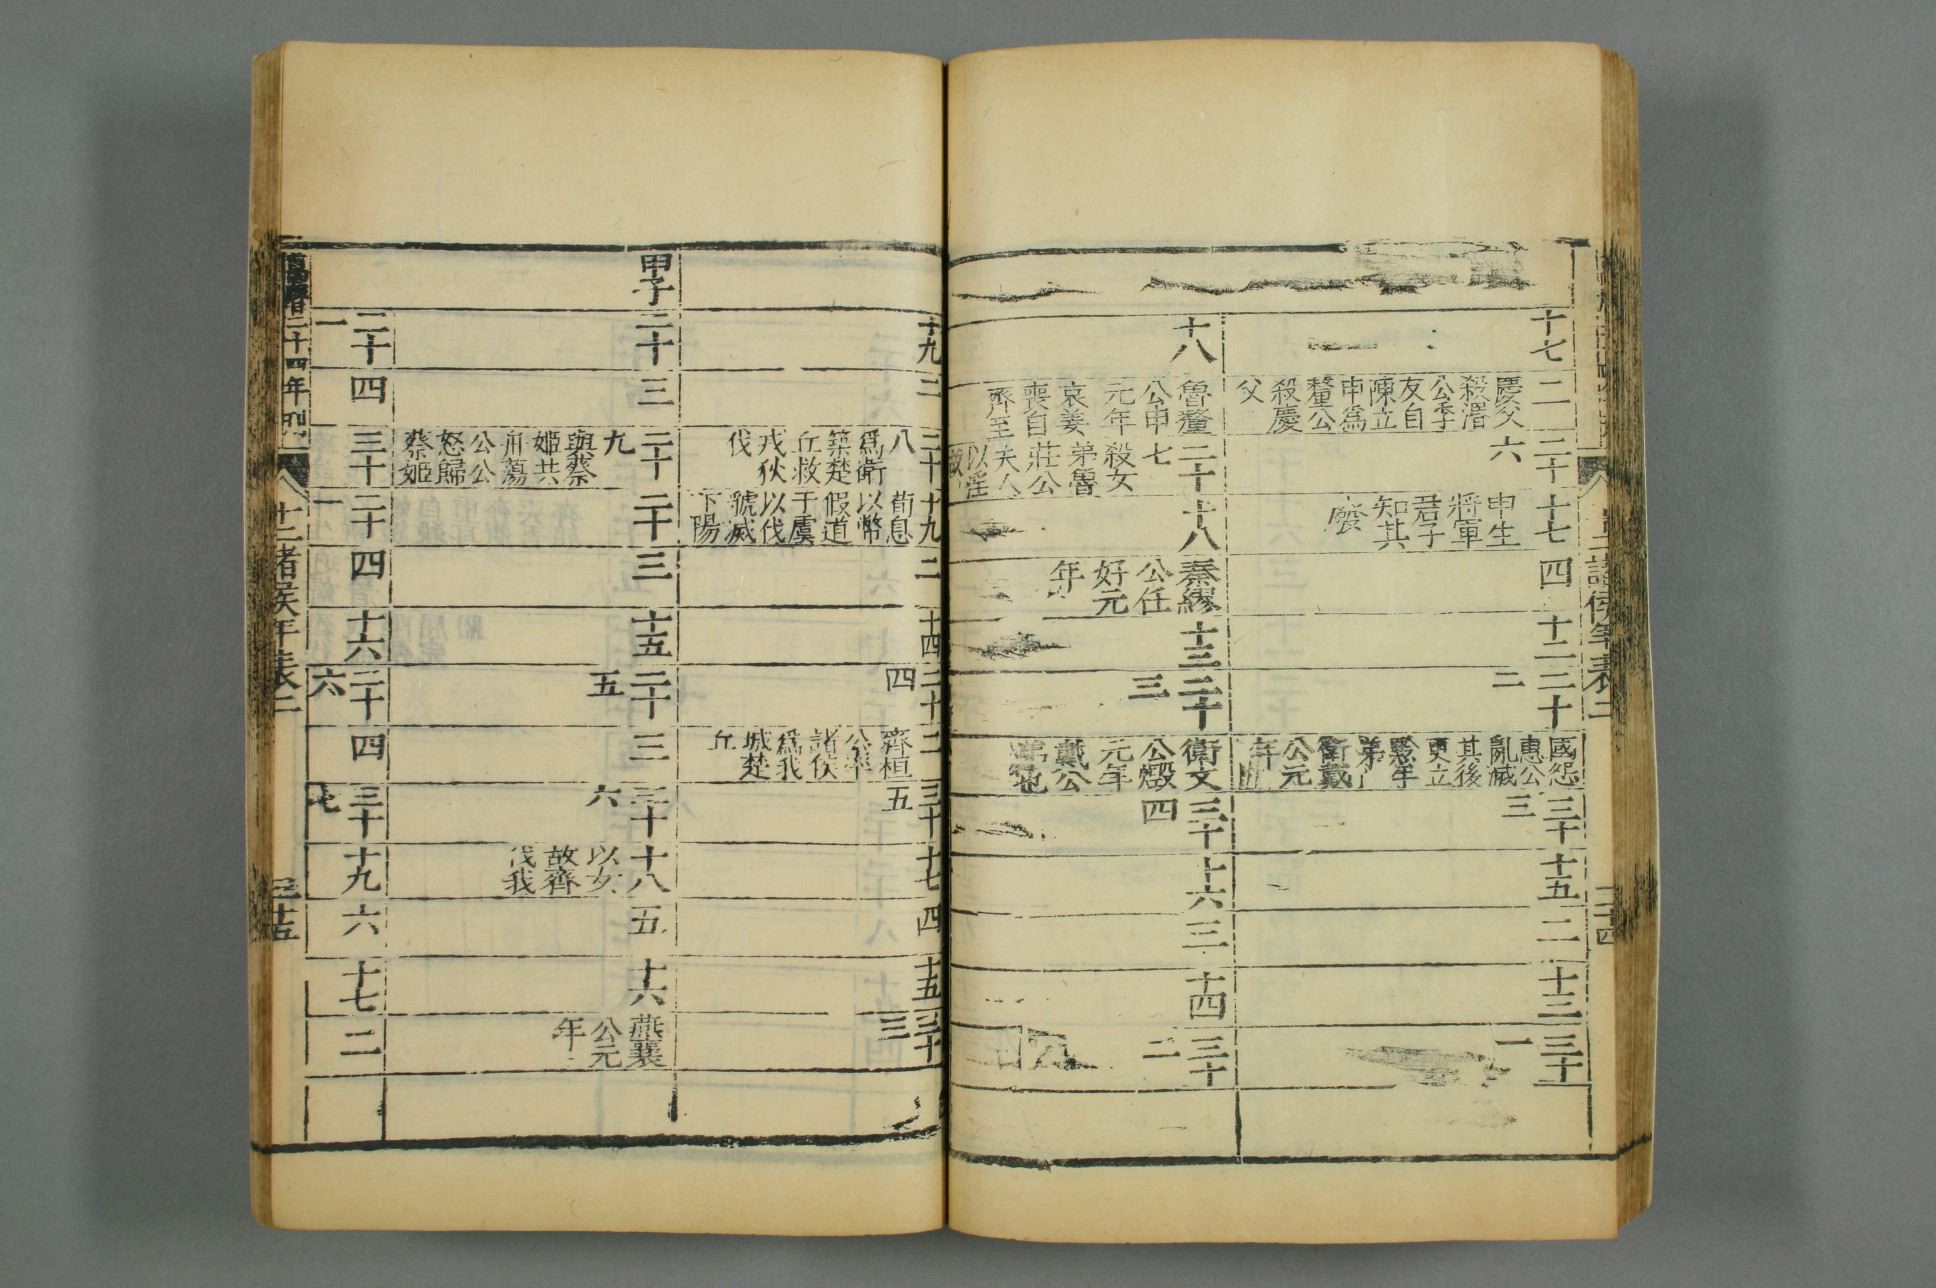 十七
二
慶父
殺湣
公季
友自
陳立
申爲
釐公
殺慶
父
二十
六
十七
申生
將軍
君子
知其
廢
四
十二
二十
二
國怨
惠公
亂滅
其後
更立
黔牟
弟
衛戴
公元
年
三十
三
十五
二
十三
三十
一
十八
魯釐
公申
元年
哀姜
喪自
齊至
二十
七
殺女
弟魯
莊公
夫人
以淫
故
十八
秦繆
公任
好元
年
十三
二十
三
衛文
公燬
元年
戴公
弟也
三十
四
十六
三
十四
三十
二
十九
二
二十
八
爲衛
築楚
丘救
戎狄
伐
十九
荀息
以幣
假道
于虞
以伐
虢滅
下陽
二
十四
二十
四
二
齊桓
公率
諸侯
爲我
城楚
丘
三十
五
十七
四
十五
三十
三
甲子
二十
三
二十
九
與蔡
姬共
舟蕩
公公
怒歸
蔡姬
二十
三
十五
二十
五
三
三十
六
十八
以女
故齊
伐我
五
十六
燕襄
公元
年
二十
一
四
三十
二十
一
四
十六
二十
六
四
三十
七
十九
六
十七
二
二十四年刊
十二諸侯年表二